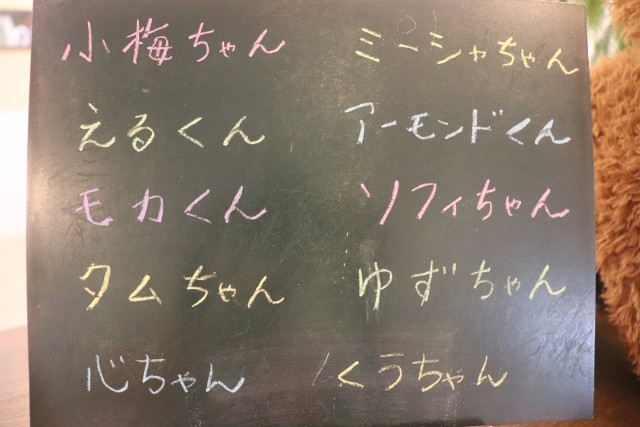 小梅ちゃん
ミーシャちゃん
えるくん
アーモンドくん
モカくん
ソフィちゃん
タムちゃん
ゆずちゃん
心ちゃん
くうちゃん